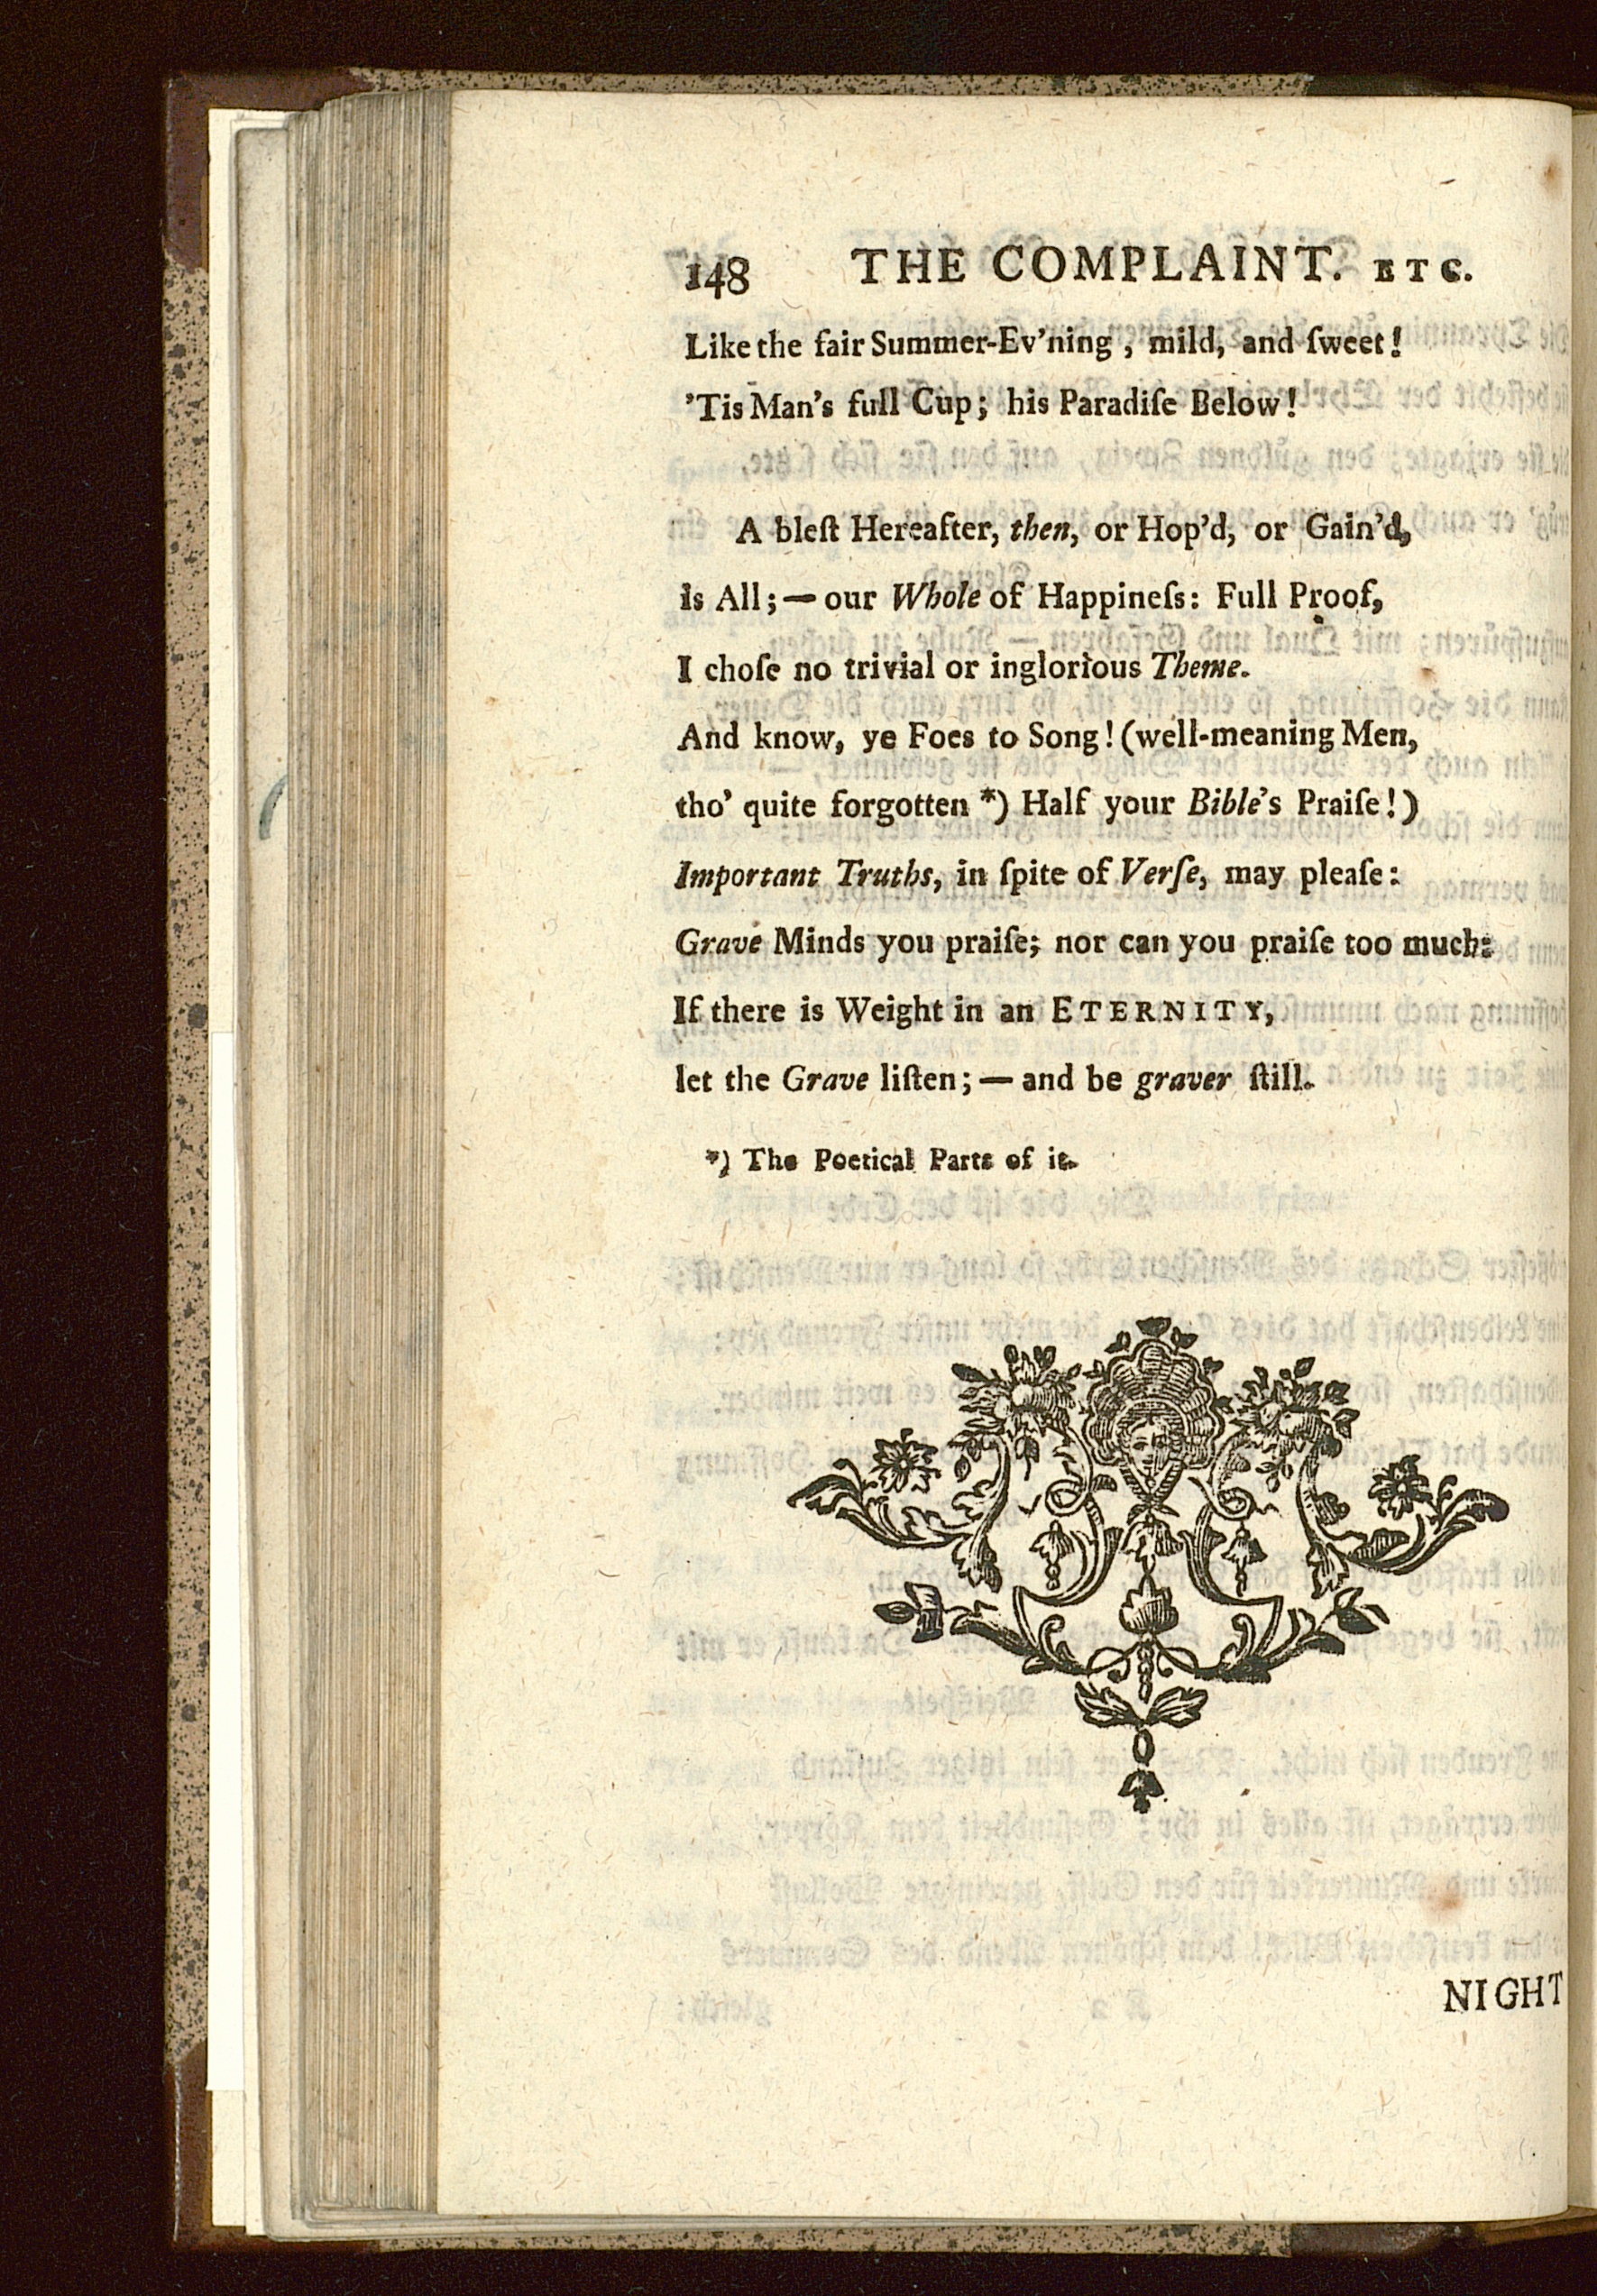 148 THE COMPLAINT. ETC.
Like the fair Summer-Ev'ning, mild, and ſweet!
'Tis Man's full Cup; his Paradiſe Below!
A bleſt Hereafter, then, or Hop'd, or Gain'd,
is All; — our Whole of Happineſs: Full Proof,
I choſe no trivial or inglorious Theme.
And know, ye Foes to Song! (well-meaning Men,
tho' quite forgotten *) Half your Bible's Praiſe!)
Important Truths, in ſpite of Verſe, may pleaſe:
Grave Minds you praiſe; nor can you praiſe too much:
If there is Weight in an ETERNITY,
let the Grave liſten; — and be graver ſtill.
*) The Poetical Parts of it.
NIGHT